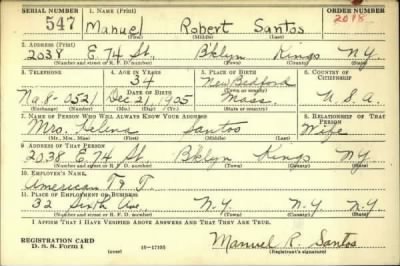 SERIAL NUMBER 1. NAME (Print) ORDER NUMBER
547 Manuel Robert Santos 2098
(First) (Middle) (Last)
2. ADDRESS (Print)
2038 E. 74 St. Bklyn Kings N.Y.
(Number and street or R. F. D. number) (Town) (County) (State)
3. TELEPHONE 4. AGE IN YEARS 5. PLACE OF BIRTH 6. COUNTRY OF CITIZENSHIP
34 New Bedford
DATE OF BIRTH (Town or county)
Na 8-0521 Dec 21 1905 Mass. U.S.A.
(Exchange) (Number) (Mo.) (Day) (Yr.) (State or country)
7. NAME OF PERSON WHO WILL ALWAYS KNOW YOUR ADDRESS 8. RELATIONSHIP OF THAT PERSON
Mrs. Helena Santos Wife
(Mr., Mrs., Miss) (First) (Middle) (Last)
9. ADDRESS OF THAT PERSON
2038 E. 74 St. Bklyn Kings N.Y.
(Number and street or R. F. D. number) (Town) (County) (State)
10. EMPLOYER'S NAME
American T & T
11. PLACE OF EMPLOYMENT OR BUSINESS
32 Sixth Ave N.Y. N.Y.
(Number and street or R. F. D. number) (Town) (County) (State)
I AFFIRM THAT I HAVE VERIFIED ABOVE ANSWERS AND THAT THEY ARE TRUE.
REGISTRATION CARD
D. S. S. FORM 1 (over) 16—17105 Manuel R. Santos
(Registrant's signature)